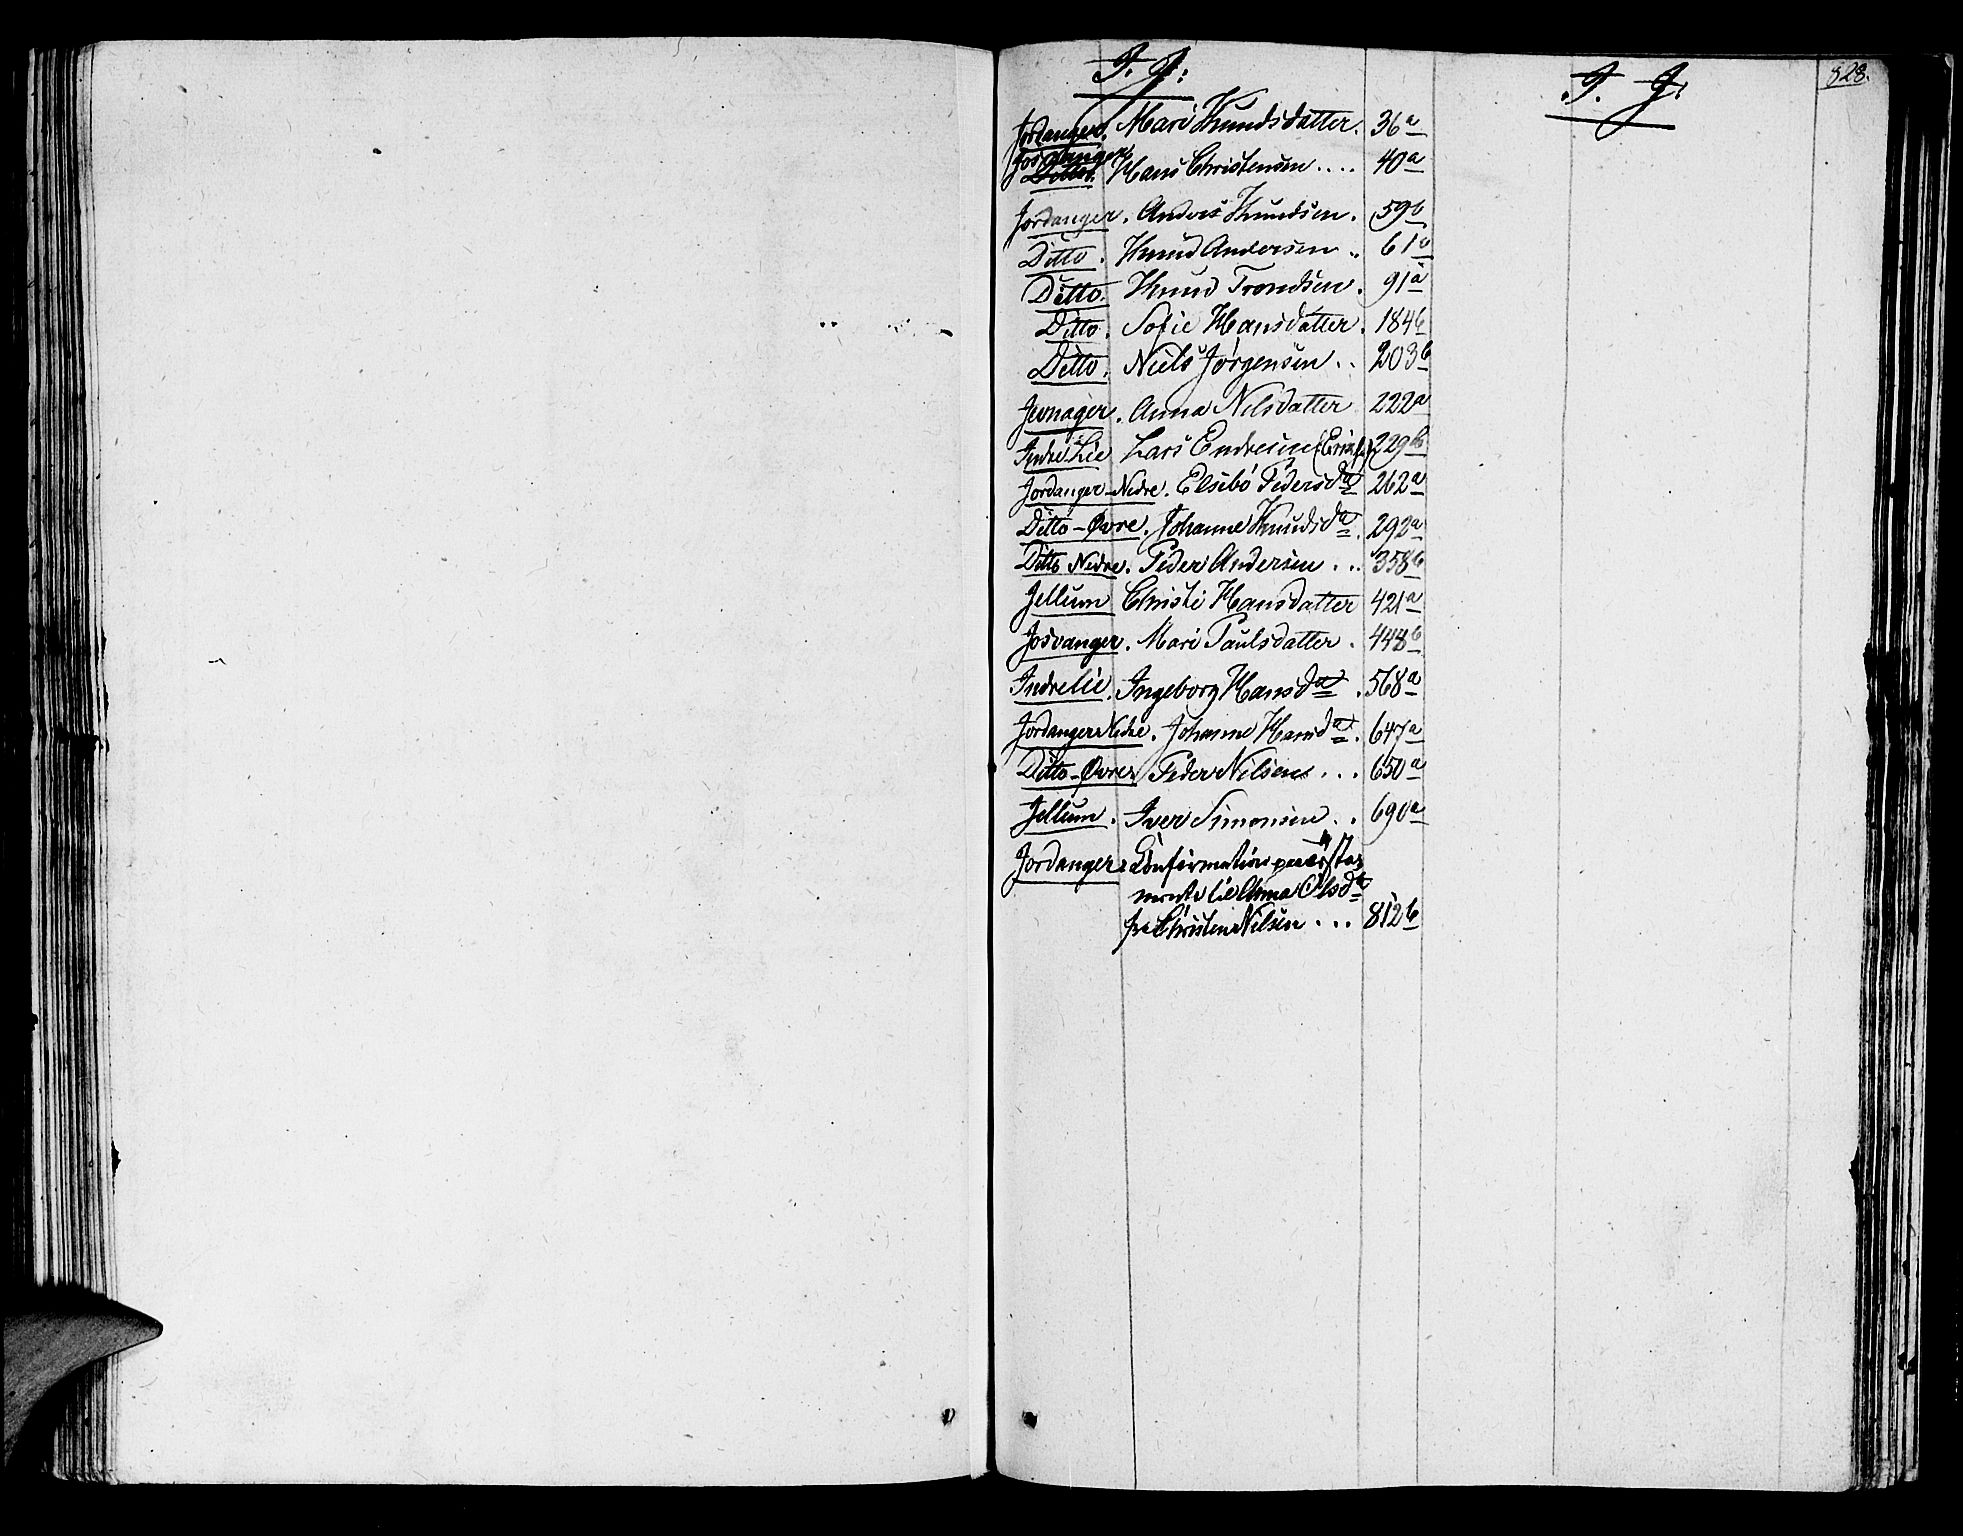 I. J:
I. J.
828.
Jordanger. Mari Knudsdatter. 36a
Josvanger Hans Christensen .... 40a
Jordanger. Anders Knudsen. 59b
Ditto. Knud Andersen .. 61a
Ditto. Knud Trondsen. 91a
Ditto. Sofie Hansdatter. 184b
Ditto. Niels Jørgensen .. 203b
Jevnager. Anna Nilsdatter 222a
Indre Lie Lars Endresen 229b
Jordanger-Nedre. Elsebo Pedersda 262a
Ditto-Øvre. Johanne Knudsda. 292a
Ditto Nedre. Peder Andersen ... 358b
Jellum Christi Hansdatter 421a
Josvanger. Mari Paulsdatter. 448b
Indrelie. Ingeborg Hansda. 568a
Jordanger Nedre. Johanne Hansda. 647a
Ditto-Øvre Peder Nilsen ... 650a
Jellum. Iver Simonsen .. 690a
Jordanger Confirmation paa
mente til Anna Olsda
fra Christen Nilsen ... 812b